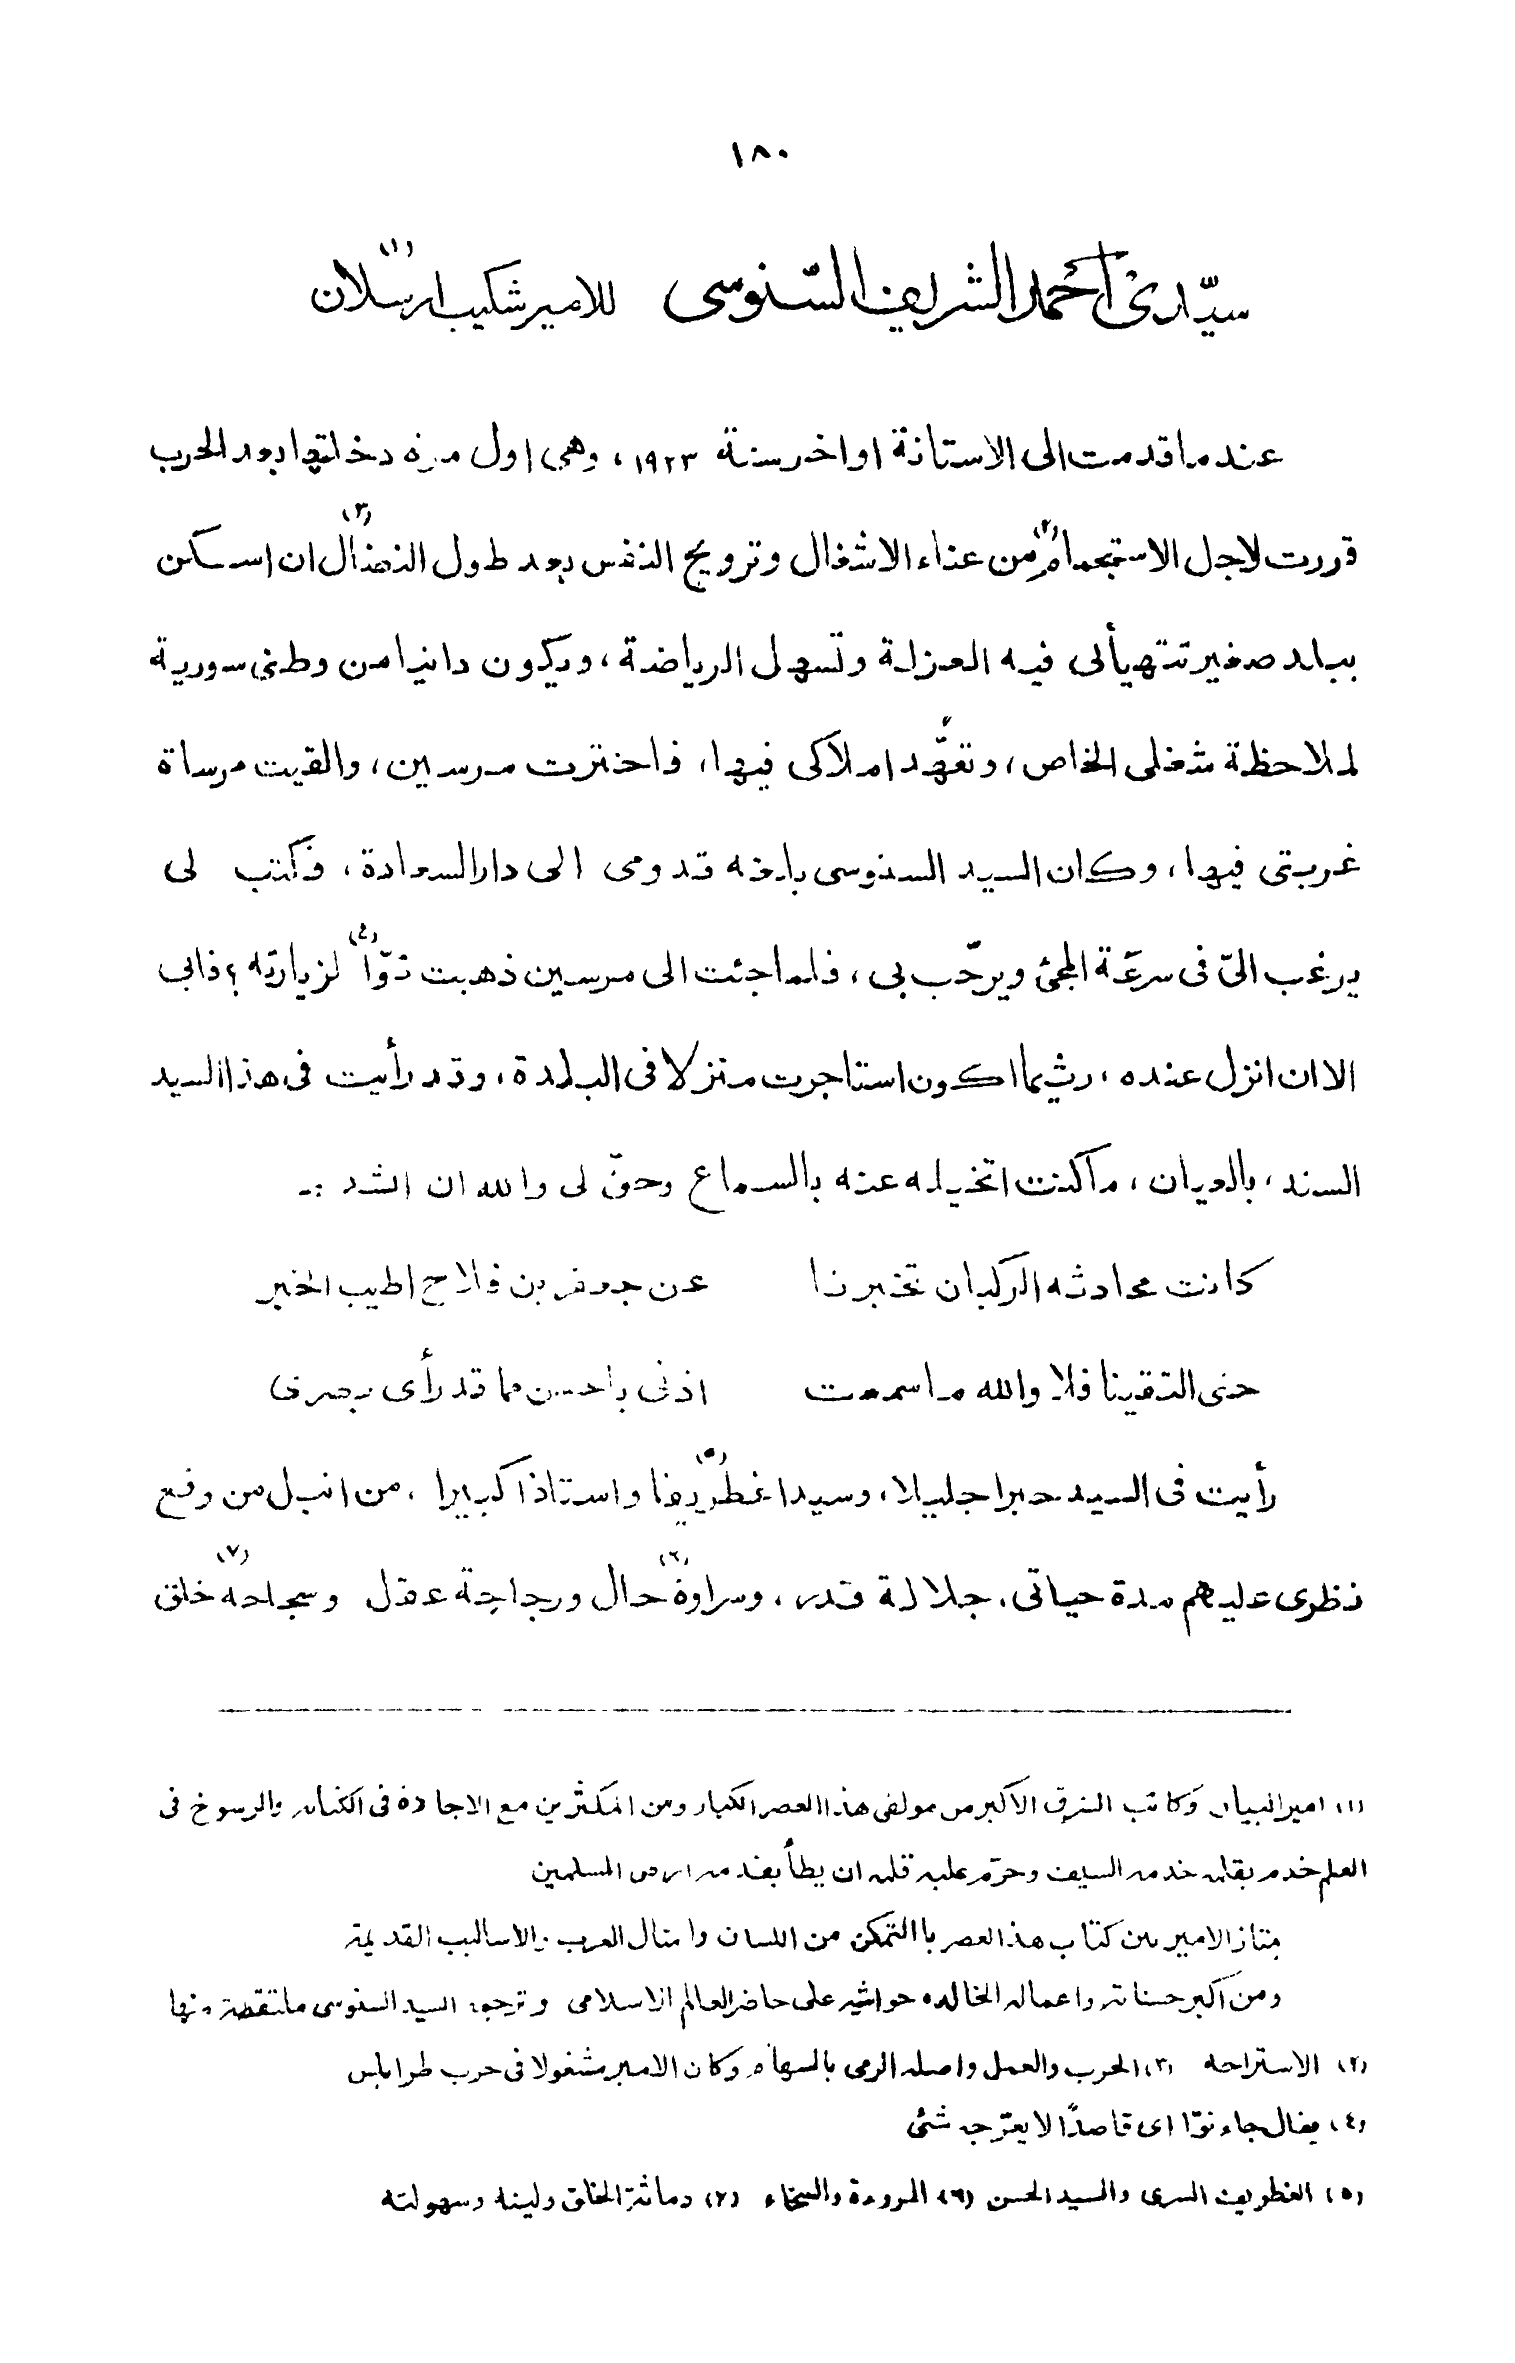 ١٨٠
سيّدى أحمد الشريف السّنوسى للامير شكيب ارسلان (١)
عند ما قدمت الى الاستانة اواخر سنة ١٩٢٣، وهى اول مرة دخلتها بعد الحرب
قررت لاجل الاستجمام (٢) من عناء الاشغال وترويح النفس بعد طول النضال (٣) ان اسكن
ببلد صغير تتهيأ لى فيه العزلة وتسهل الرياضة، ويكون دانيا من وطنى سورية
لملاحظة شغلى الخاص، وتعهّد املاكى فيها، فاخترت مرسين، والقيت مرساة
غربتى فيها، وكان السيد السنوسى بلغه قدومى الى دار السعادة، فكتب لى
يرغب الىّ فى سرعة المجئ ويرحّب بى، فلما جئت الى مرسين ذهبت توّا (٤) لزيارته؟ فابى
الا ان انزل عنده، ريثما اكون استاجرت منزلا فى البلدة، وقد رأيت فى هذا السيد
السند، بالعيان، ما كنت اتخيله عنه بالسماع وحقّ لى والله ان انشد :-
كانت محادثه الركبان تخبرنا عن جعفر بن فلاح اطيب الخبر
حتى التقينا فلا والله ما سمعت اذنى باحسن مما قد رأى بصرى
رأيت فى السيد حبرا جليلا، وسيدا غطريفا (٥) واستاذا كبيرا، من انبل من وقع
نظرى عليهم مدة حياتى، جلالة قدر، وسراوة (٦) حال ورجاجة عقل وسجاحة (٧) خلق
(١) امير البيان وكاتب الشرق الاكبر من مولفى هذا العصر الكبار ومن المكثرين مع الاجادة فى الكتابه والرسوخ فى
العلم خدم بقلمه خدمه السيف وحرّم عليه قلمه ان يطأ بقدمه ارض المسلمين
يمتاز الامير بين كتاب هذ العصر باالتمكن من اللسان وامثال العرب والاساليب القديمة
ومن اكبر حسناته واعماله الخالده حواشيه على حاضر العالم الاسلامى وترجمة السيد السنوسى ملتقطة منها
(٢) الاستراحه (٣) الحرب والعمل واصله الرمى بالسهام وكان الامير مشغولا فى حرب طرابلس
(٤) يقال جاء توّا اى قاصدًا لا يعرّجه شئ
(٥) الغطريف السرى والسيد الحسن (٦) المروءة والسخاء (٧) دماثة الخلق ولينه وسهولته